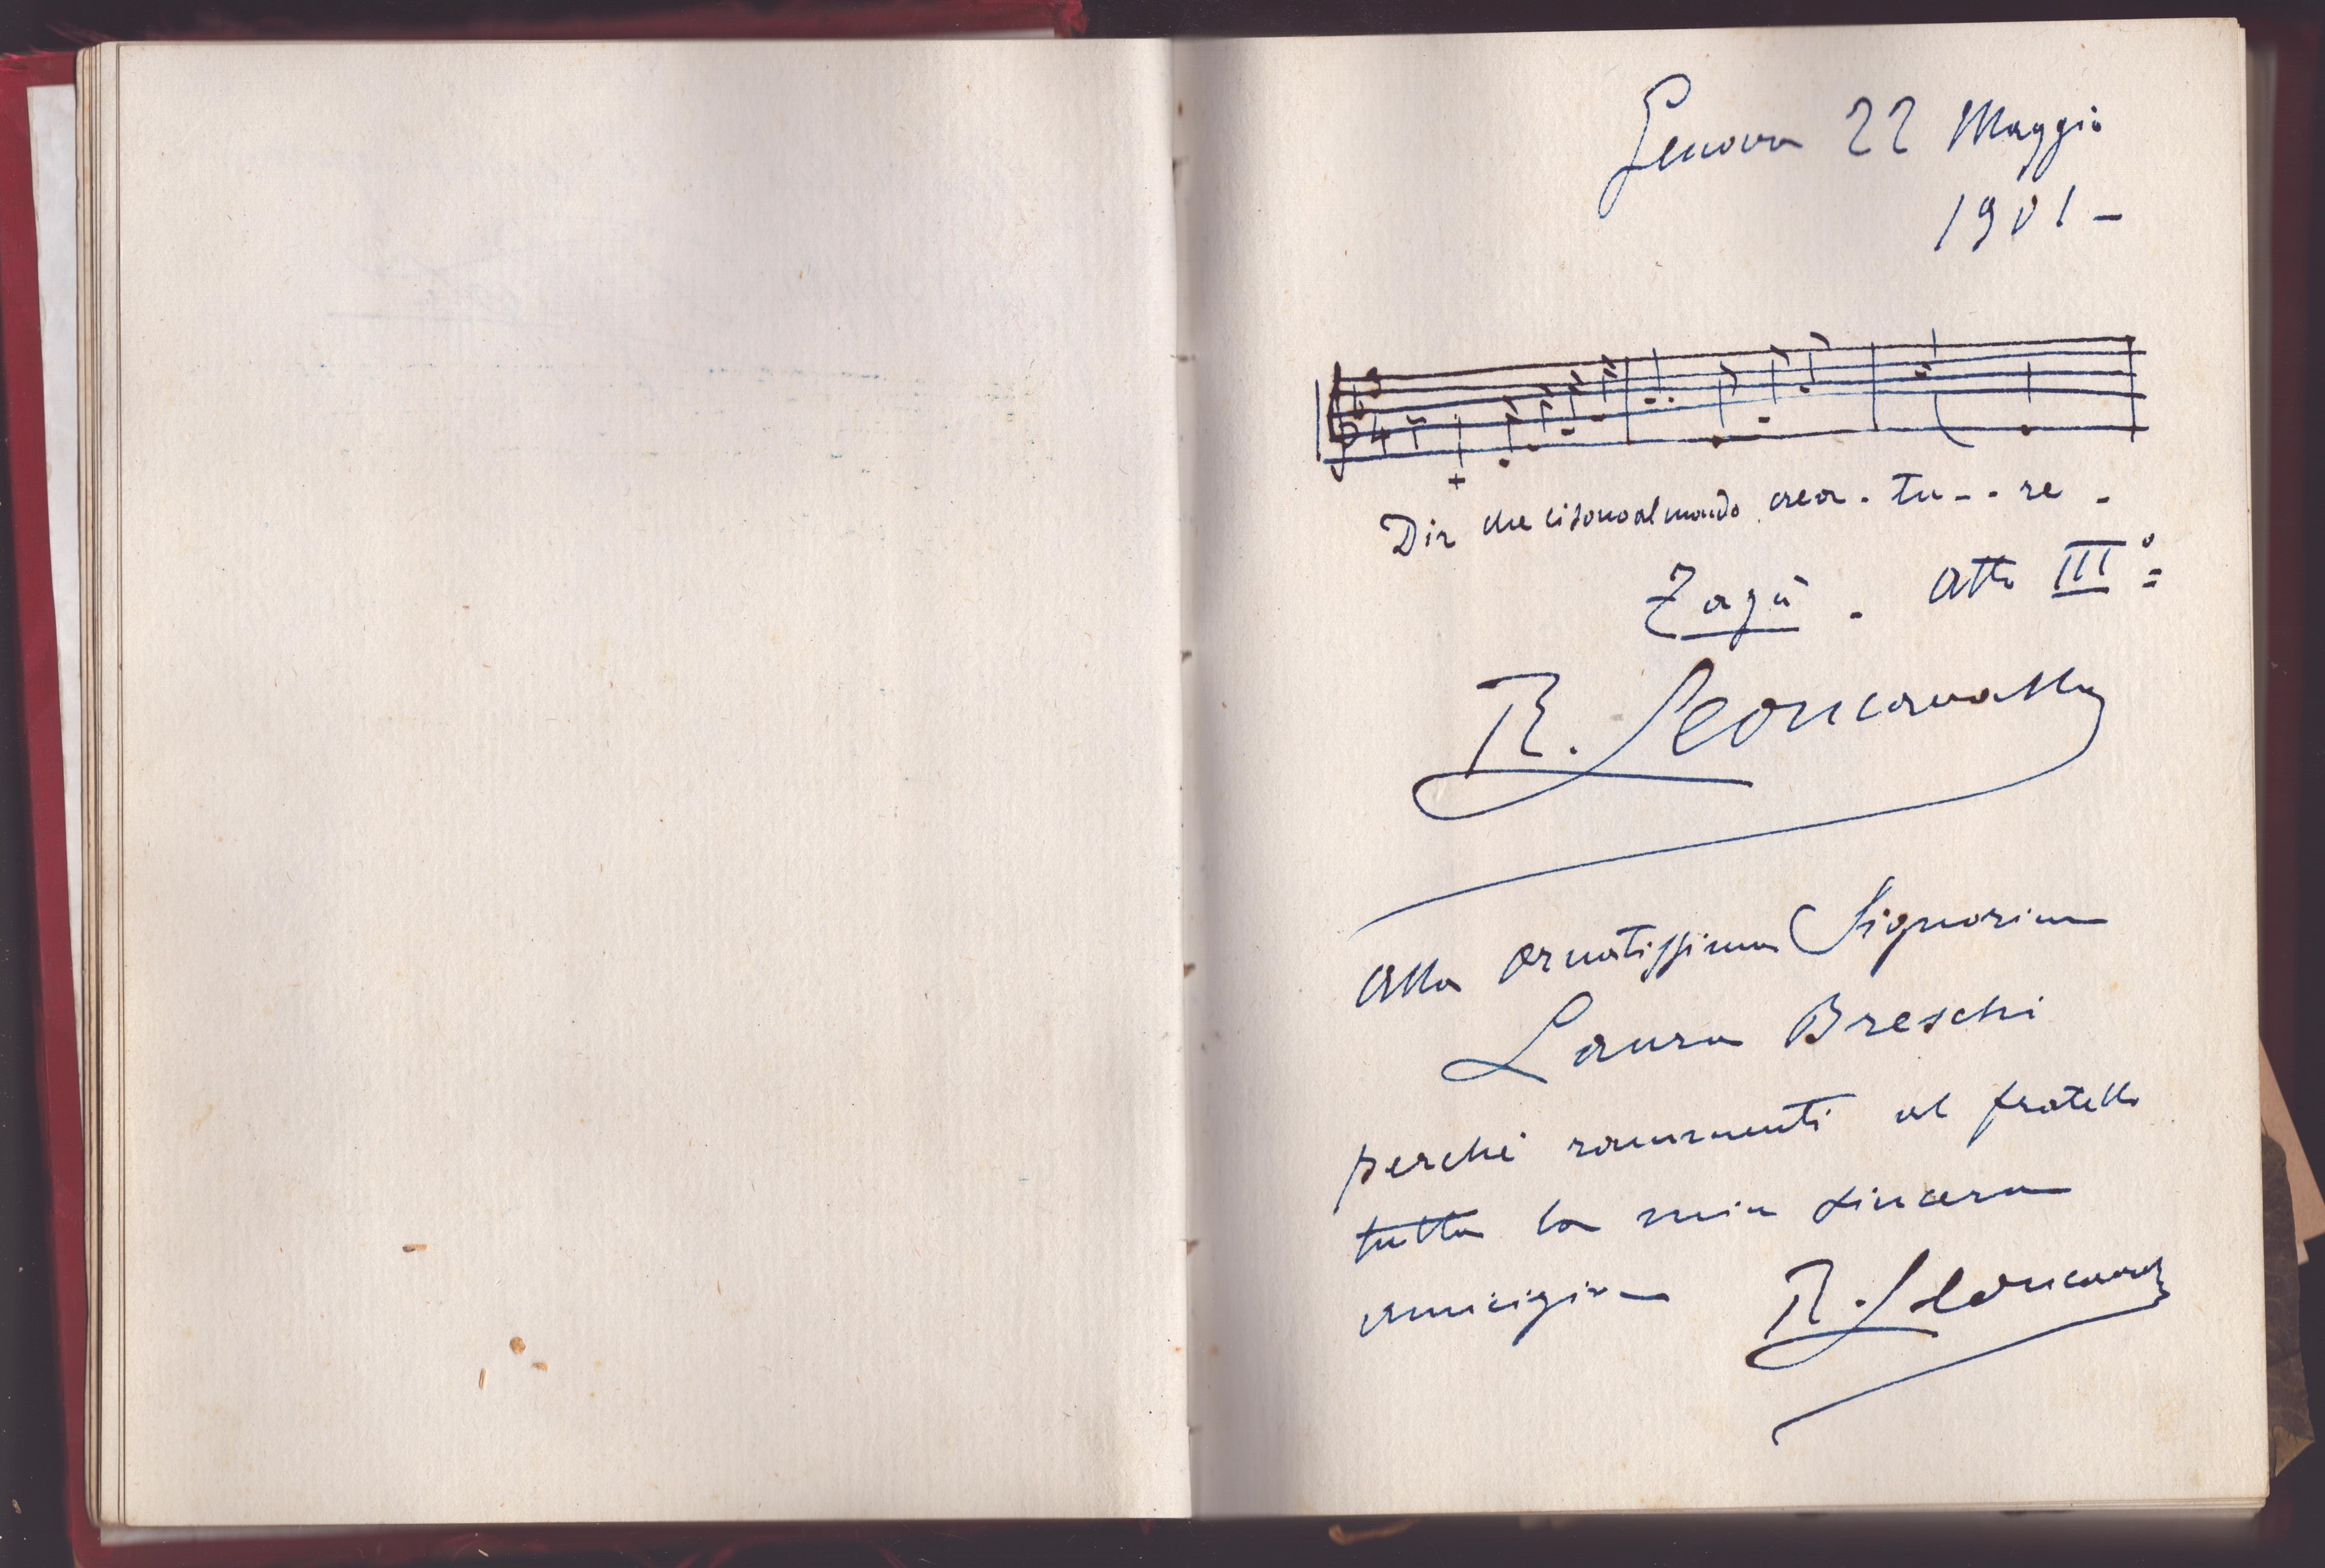 Genova 22 Maggio
1901 –
Dir che ci sono al mondo crea - tu - - re -
Zazà . Atto IIIº =
R. Leoncavallo
Alla ornatissima Signorina
Laura Breschi
perché rammenti al fratello
tutta la mia sincera
amicizia R. Leoncavallo